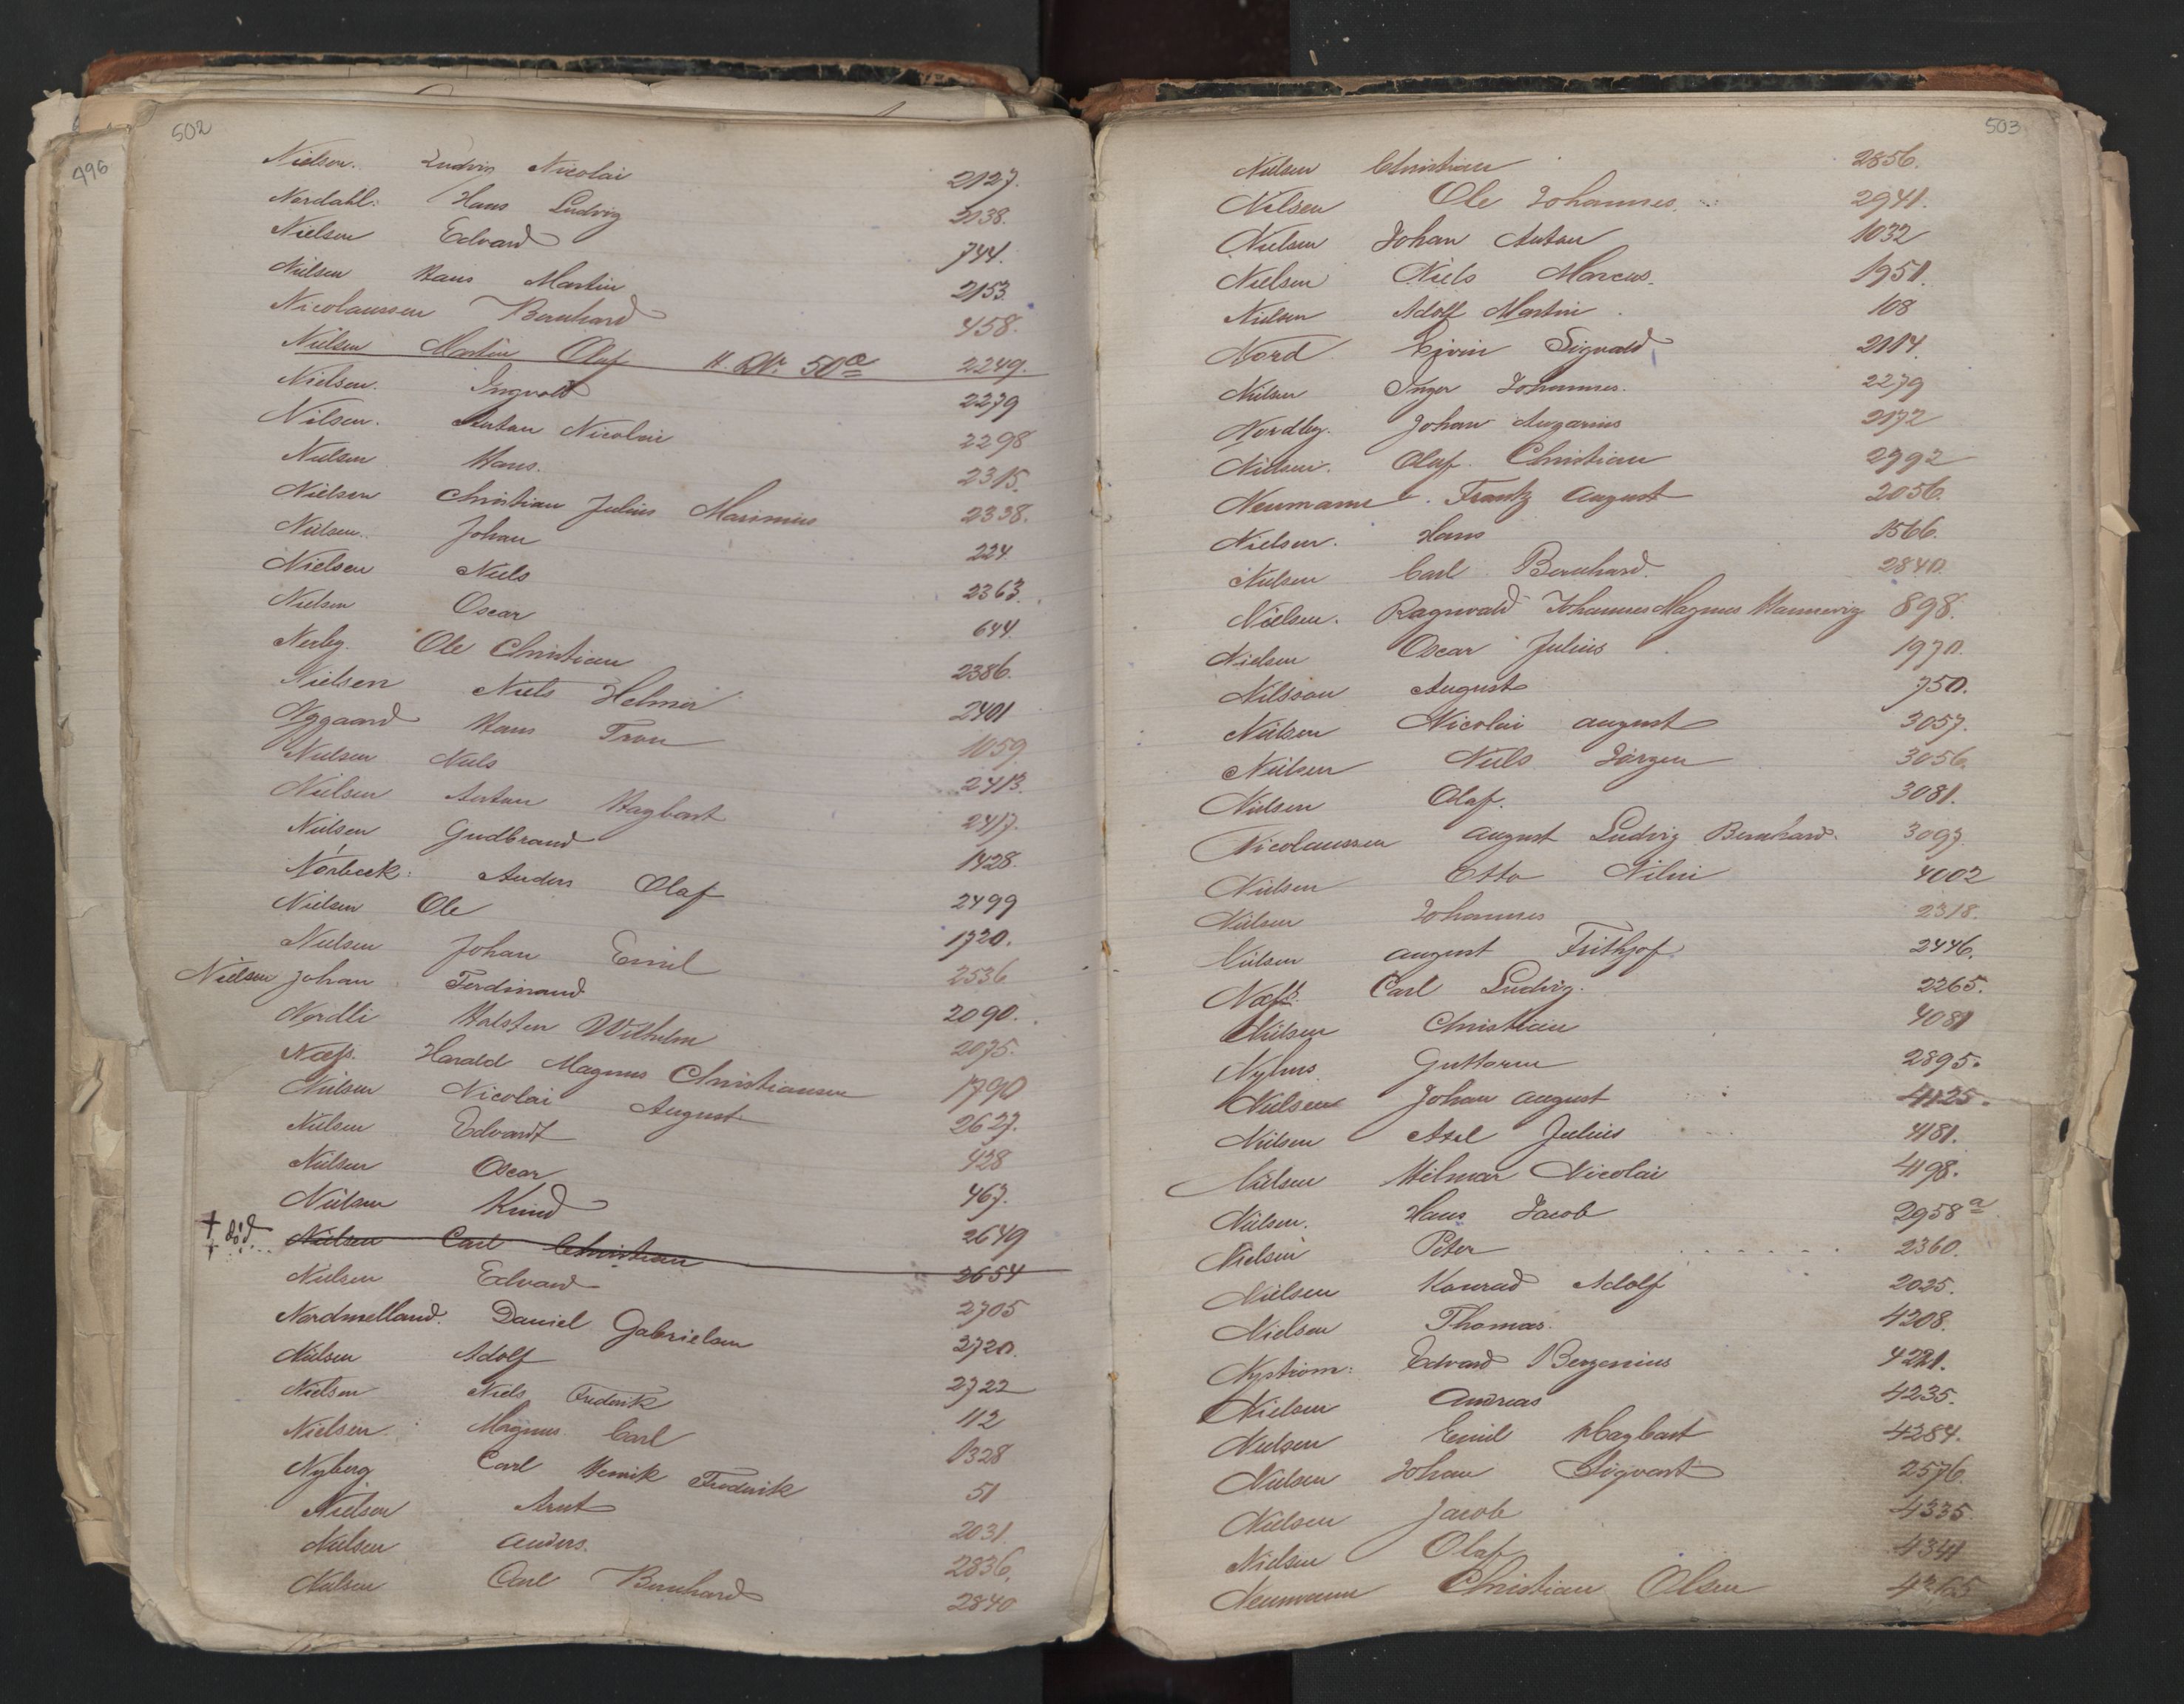 496
502
Nielsen. Ludvig Nicolai 2127.
Nordahl: Hans Ludvig 2138.
Nielsen Edvard 744.
Nielsen Hans Martin 2153.
Nicolaussen Bernhard 458.
Nielsen Martin Olaf H. R. Nr. 50a 2249.
Nielsen. Ingvald 2279
Nilsen. Anton Nicolai 2298
Nielsen Hans. 2315.
Nielsen Christian Julius Marinius 2338.
Nielsen. Johan 224
Nielsen Niels 2363.
Nielsen Oscar 644.
Nerby. Ole Christian 2386.
Nielsen Niels Helmer 2401
Nygaard Hans Tron 1059
Nielsen Niels 2413.
Nielsen Anton Hagbart 2417.
Nielsen Gudbrand 1428.
Nórbeck: Anders Olaf 2499
Nielsen Ole 1720.
Nielsen Johan Emil 2536
Nielsen Johan Ferdinand 2090.
Nordli Halsten Wilhelm 2075.
Næss. Harald Magnus Christiansen 1790
Nielsen Nicolai August 2627.
Nielsen Edvardt 428
Nielsen Oscar 467.
Nielsen Knud 2649
† död Nielsen Carl Christian 2654
Nielsen Edvard 2705
Nordmelland. Daniel Gabrielsen 2720.
Nielsen Adolf 2722
Nielsen Niels Frederik 112
Nielsen Magnus Carl 1328
Nyberg Carl Henrik Frederik 51
Nielsen Arnt 2031.
Nielsen Anders. 2836.
Nielsen Carl Bernhard 2840
503
Nielsen Christian 2856.
Nilsen Ole Johannes. 2941.
Nielsen Johan Anton 1032
Nielsen Niels Marcus. 1951.
Nielsen Adolf Martin. 108
Nord Eivin Sigvald 2114.
Nielsen Inger Johannes. 2279
Nordby. Johan Angarius 2172
Nielsen. Olaf. Christian 2792
Neumann. Frantz August 2056.
Nielsen. Hans 1566.
Nielsen Carl Bernhard. 2840.
Nielsen. Ragnvald Johannes Magnus Hannevig 898.
Nielsen Oscar Julius 1970.
Nilsson August 750.
Nielsen Nicolai August 3057.
Nielsen Niels Jörgen 3056.
Nielsen Olaf. 3081.
Nicolaussen August Ludvig Bernhard. 3097.
Nielsen Otto 4002
Nielsen Johannes 2318.
Nielsen August Frithjof. 2446.
Næss. Carl Ludvig. 2265.
Nielsen Christian 4081
Nyhus Guttorm 2895.
Nielsen Johan August 4125.
Nielsen Axel Julius 4181.
Nielsen Hilmar Nicolai 4198.
Nielsen. Hans Jacob 2958a
Nielsen Peter 2360.
Nielsen Konrad Adolf 2025.
Nielsen Thomas. 4208.
Nystrom: Edvard Bergenius 4221.
Nielsen Andreas 4235.
Nielsen Emil Hagbart 4284.
Nielsen Johan Sigvart 2576.
Nielsen Jacob 4335.
Nielsen Olaf 4341
Neumann Christian Olsen 4365